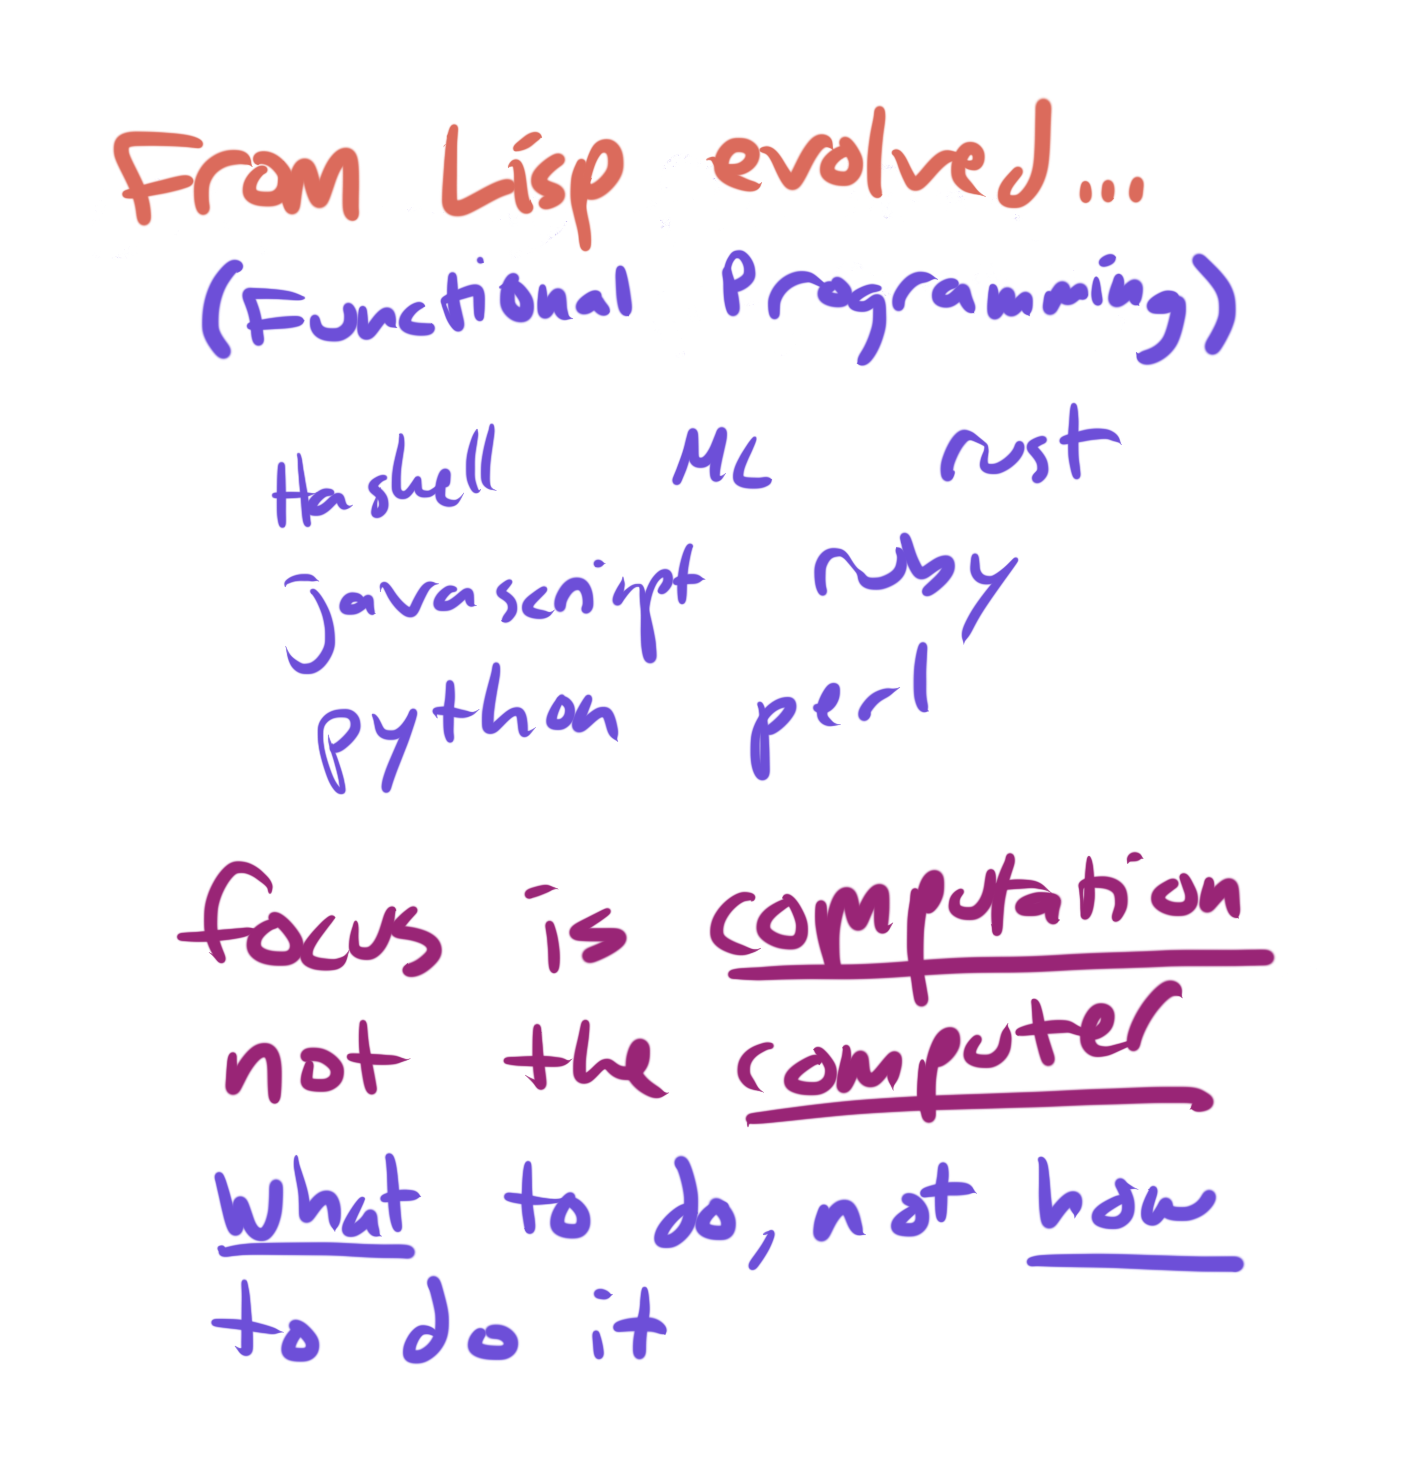 From Lisp evolved...
(Functional Programming)
Haskell ML rust
javascript ruby
python perl
focus is computation
not the computer
what to do, not how
to do it